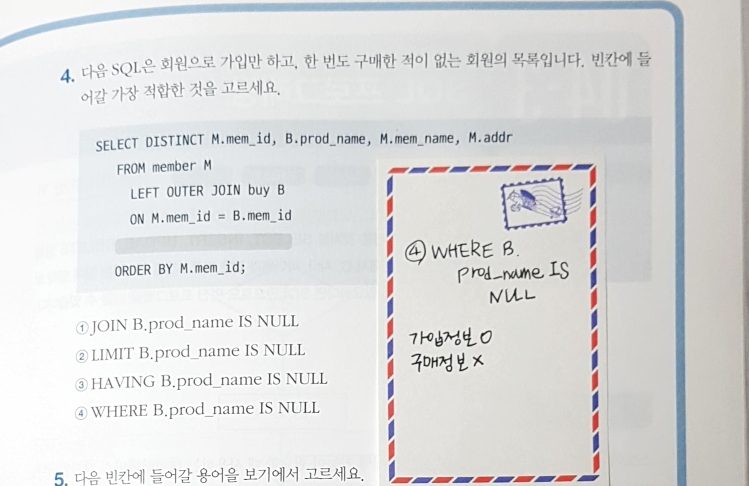 4. 다음 SQL은 회원으로 가입만 하고, 한 번도 구매한 적이 없는 회원의 목록입니다. 빈칸에 들
어갈 가장 적합한 것을 고르세요.
SELECT DISTINCT M.mem_id, B.prod_name, M.mem_name, M.addr
FROM member M
LEFT OUTER JOIN buy B
ON M.mem_id = B.mem_id
ORDER BY M.mem_id;
① JOIN B.prod_name IS NULL
② LIMIT B.prod_name IS NULL
③ HAVING B.prod_name IS NULL
④ WHERE B.prod_name IS NULL
④ WHERE B.
prod_name IS
NULL
가입정보 O
구매정보 X
5. 다음 빈칸에 들어갈 용어을 보기에서 고르세요.